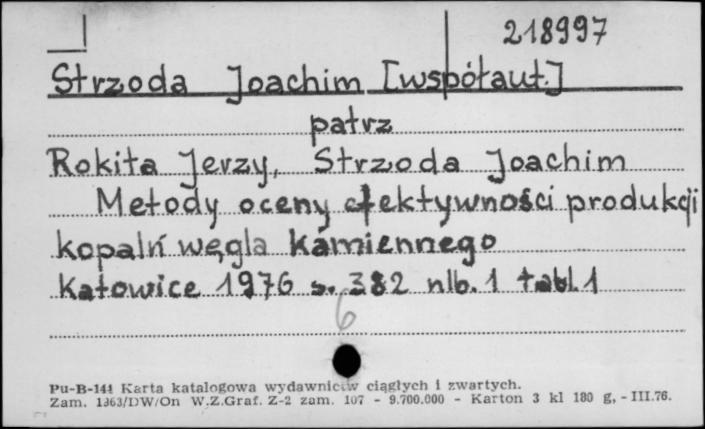 218997
Strzoda Joachim [współaut.]
patrz
Rokita Jerzy, Strzoda Joachim
Metody oceny efektywności produkcji
kopalń węgla kamiennego
Katowice 1976 s. 382 nlb. 1 tabl. 1
6
Pu-B-141 Karta katalogowa wydawnictw ciągłych i zwartych.
Zam. 1363/DW/On W.Z.Graf. Z-2 zam. 107 - 9.700.000 - Karton 3 kl 180 g, - III.76.